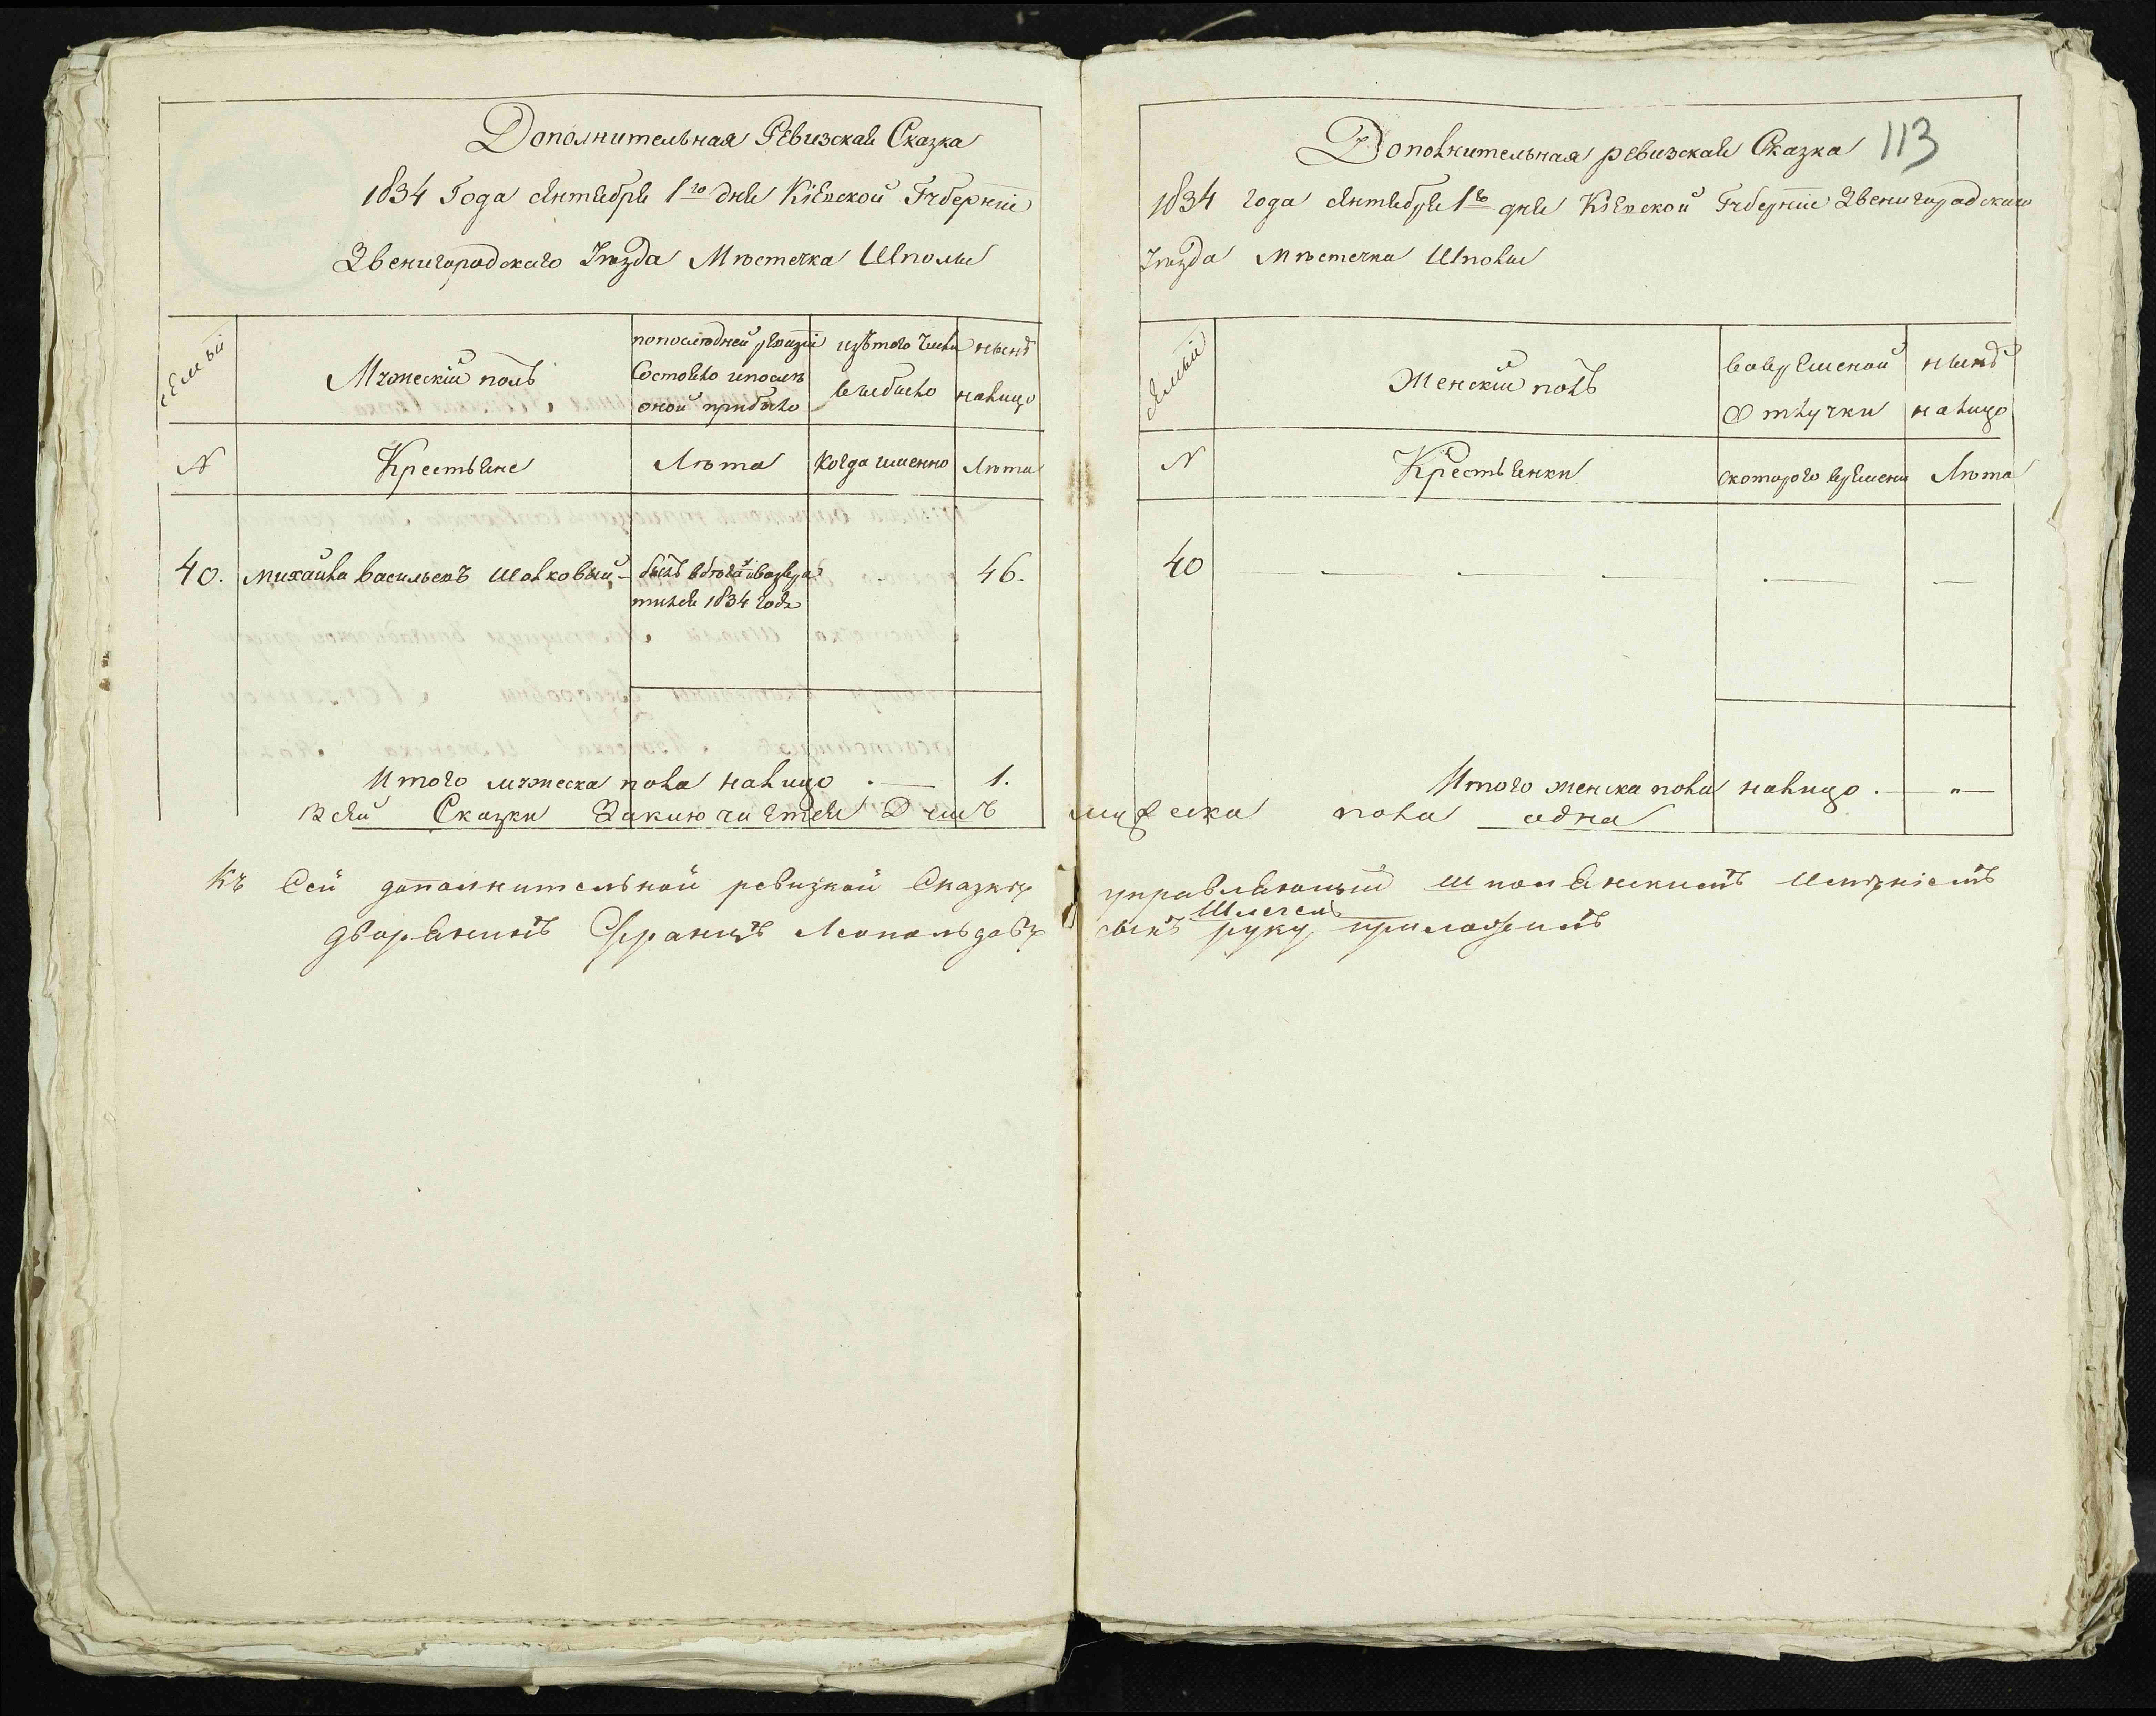 Дополнительная Ревизская Сказка
1834 Года сентября 1го дня Кіевской Губерніи
Звенигородскаго Уѣзда Мѣстечка Шполы
семьи
Мужескій полъ
по последней ревизіи
Состояло и после
оной прибыло
изъ того числа
выбыло
нынѣ
налицо
N
Крестьяне
Лѣта
Когда именно
Лѣта
40. Михайла Васильевъ Шолковый
былъ в бегах и возвра
тился 1834 года
46.
Итого мужеска пола налицо . — 1.
Дополнительная ревизская Сказка 113
1834 года сентября 1го дня Кіевской Губерніи Звенигородскаго
Уѣзда Мѣстечка Шполы
семьи
Женскій полъ
во временной
отлучки
нынѣ
налицо
N
Крестьянки
с котораго времени
Лѣта
40 — — — — —
Итого женска пола налицо . — " —
В сей Сказки Заключается Душъ мужеска пола одна
Къ Сей дополнительной ревизкой Сказкѣ управляющый Шполянскимъ Имѣніемъ
дворянинъ Францъ Леопольдовъ сынъ руку приложилъ